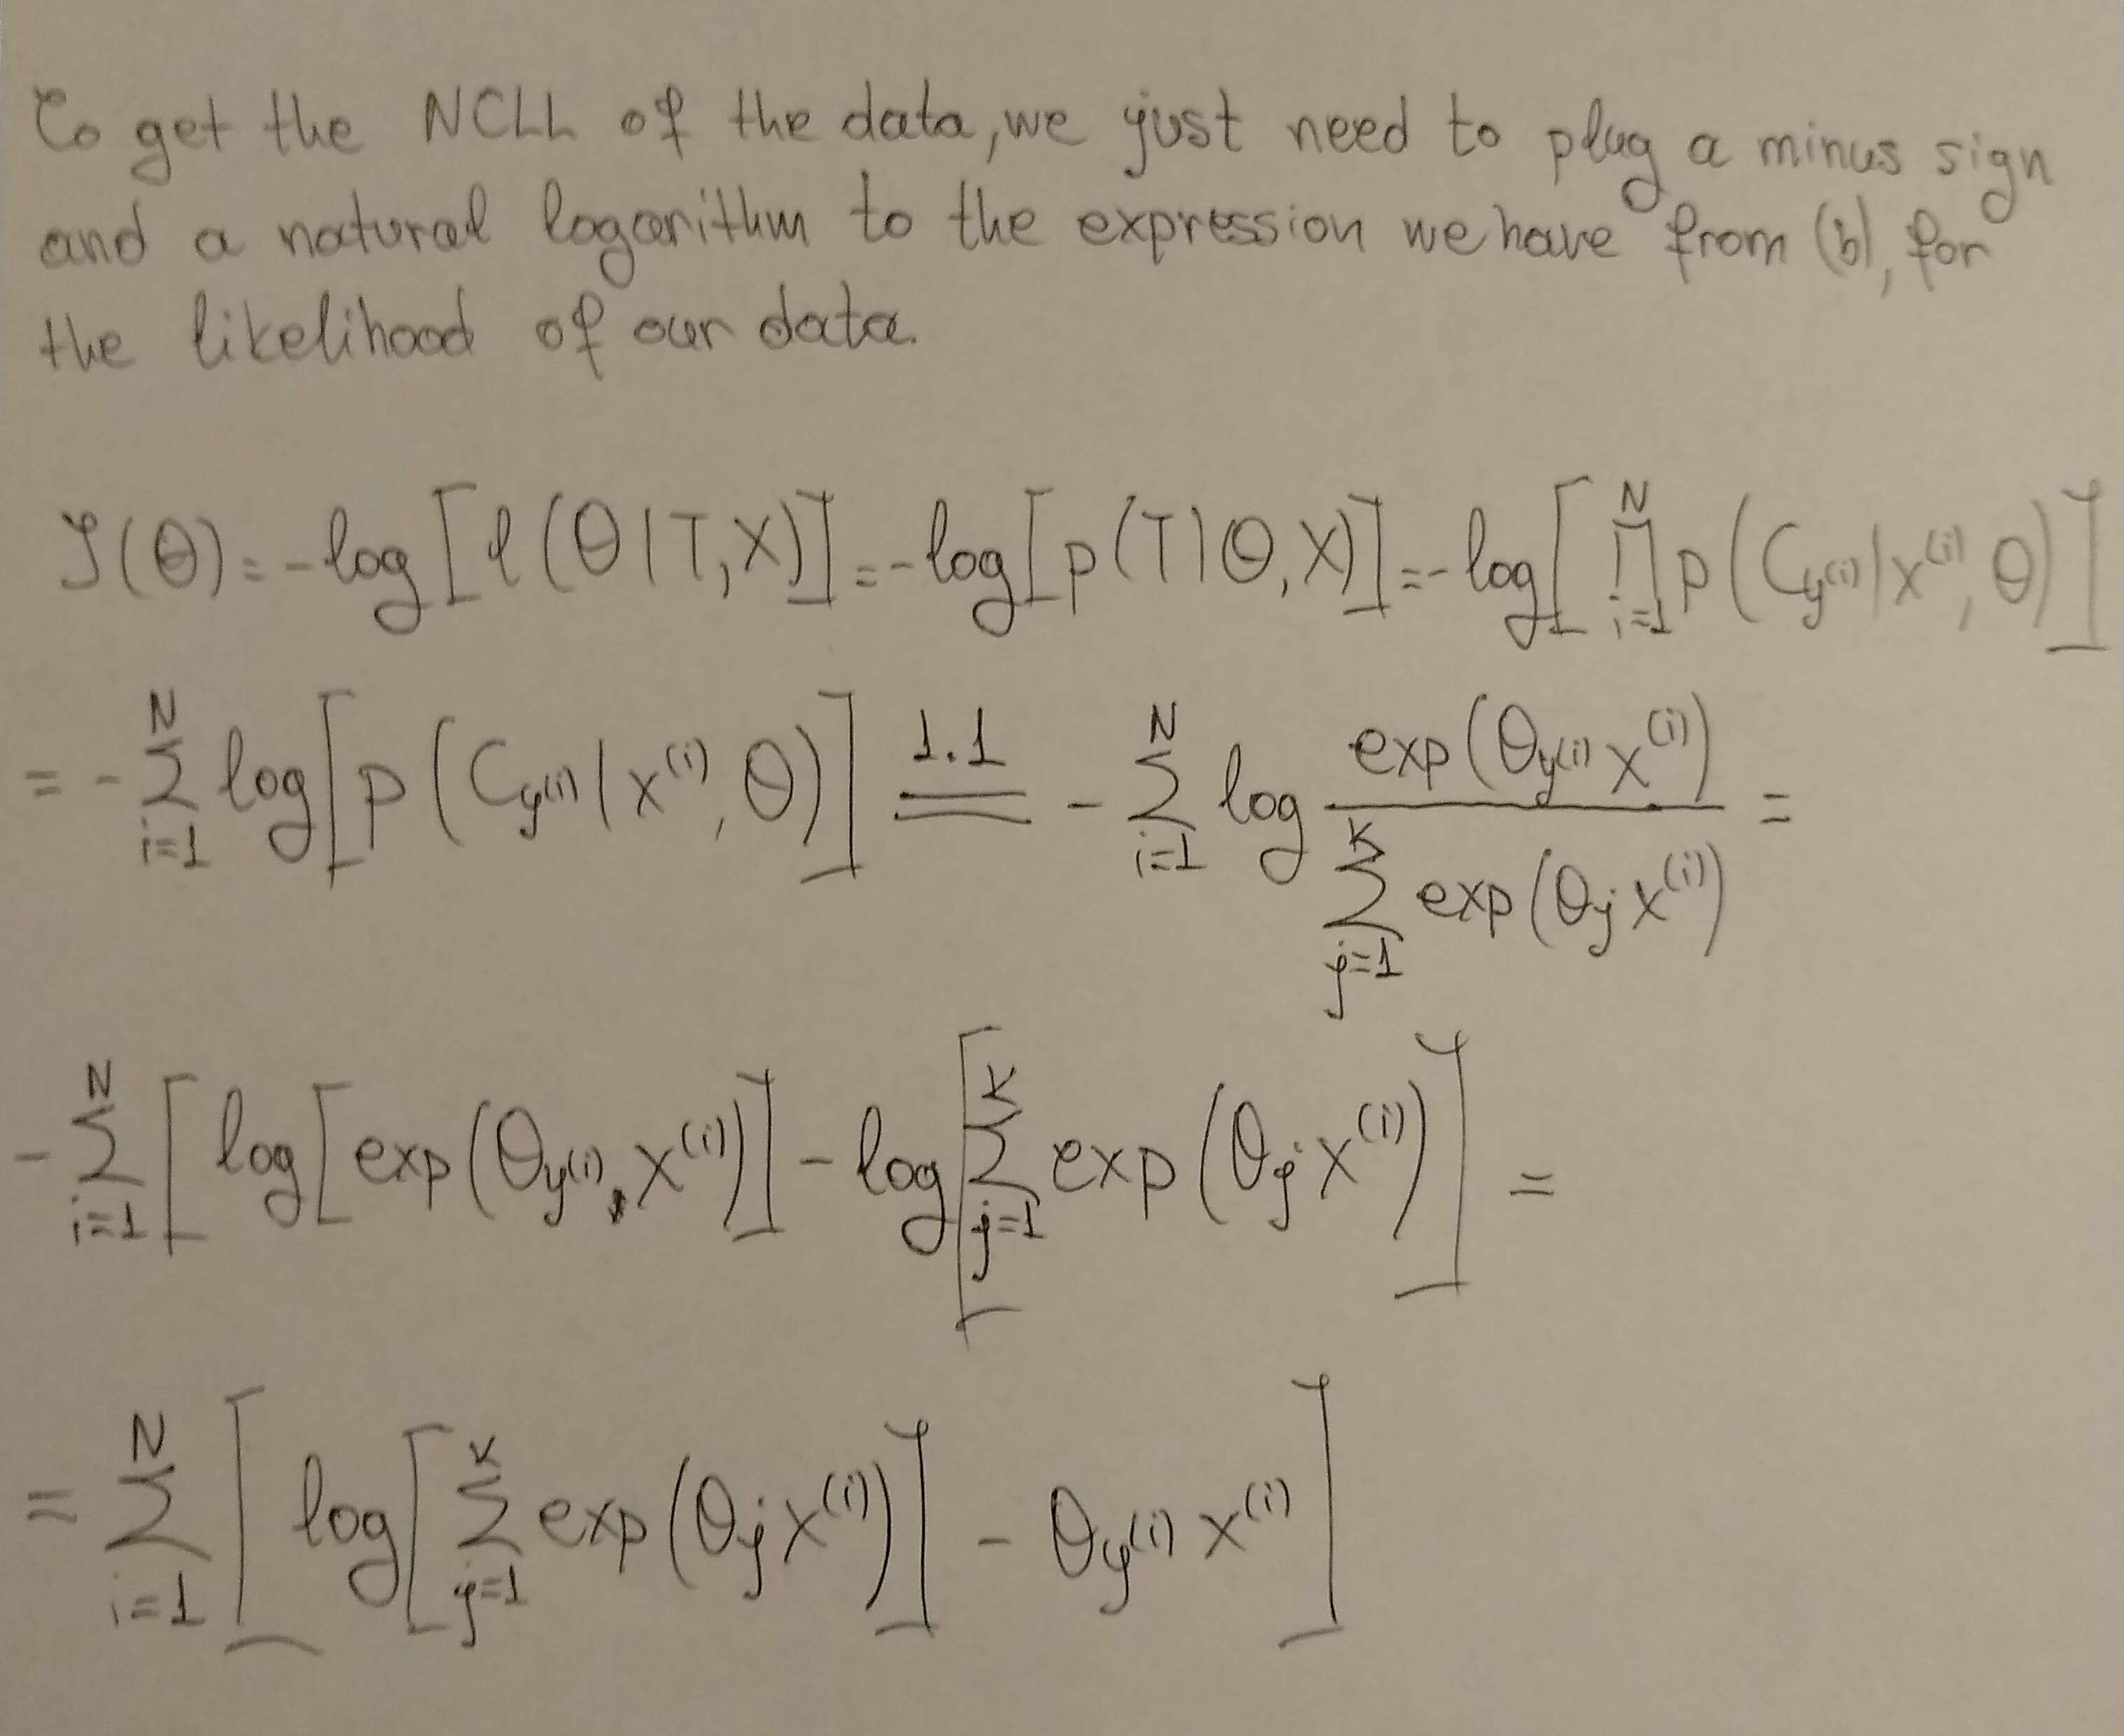 To get the NCLL of the data, we just need to plug a minus sign
and a natural logarithm to the expression we have from (b), for
the likelihood of our data.
J(θ) = -log[ℓ(θ|T,X)] = -log[p(T|θ,X)] = -log[∏_{i=1}^{N} p(C_{y^{(i)}}|x^{(i)},θ)]
= -∑_{i=1}^{N} log[p(C_{y^{(i)}}|x^{(i)},θ)] \overset{1.1}{=} -∑_{i=1}^{N} log \frac{exp(θ_{y^{(i)}} x^{(i)})}{∑_{j=1}^{K} exp(θ_j x^{(i)})} =
-∑_{i=1}^{N} [log[exp(θ_{y^{(i)}}, x^{(i)})] - log[∑_{j=1}^{K} exp(θ_j x^{(i)})] =
= ∑_{i=1}^{N} [log[∑_{j=1}^{K} exp(θ_j x^{(i)})] - θ_{y^{(i)}} x^{(i)}]